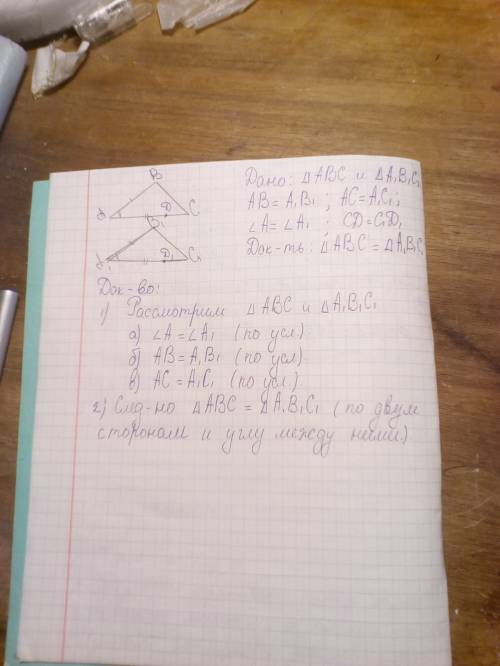 B
A D C
Дано: △ABC и △A₁B₁C₁
AB = A₁B₁ ; AC = A₁C₁;
∠A = ∠A₁ ; CD = C₁D₁
Док-ть: △ABC = △A₁B₁C₁
B₁
A₁ D₁ C₁
Док-во:
1) Рассмотрим △ABC и △A₁B₁C₁
а) ∠A = ∠A₁ (по усл.)
б) AB = A₁B₁ (по усл)
в) AC = A₁C₁ (по усл.)
2) След-но △ABC = △A₁B₁C₁ (по двум
сторонам и углу между ними)